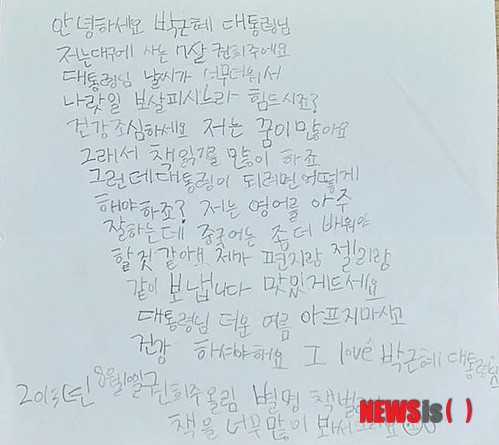 안녕하세요 박근혜 대통령님
저는대구에 사는 7살 권희주에요
대통령님 날씨가 너무더워서
나랏일 보살피시느라 힘드시죠?
건강조심하세요 저는 꿈이많아요
그래서 책읽기를 많이 하죠
그런데대통령이 되려면어떻게
해야하죠? 저는 영어를 아주
잘하는데 중국어는 좀더 배워야
할것 같아요 제가 편지랑 젤리랑
같이 보냅니다 맛있게드세요
대통령님 더운 여름 아프지마시고
건강 하셔야해요 I love 박근혜 대통령님
2013년 8월10일 권희주올림 별명 책벌
책을 너무많이 봐서
NEWSis ( )